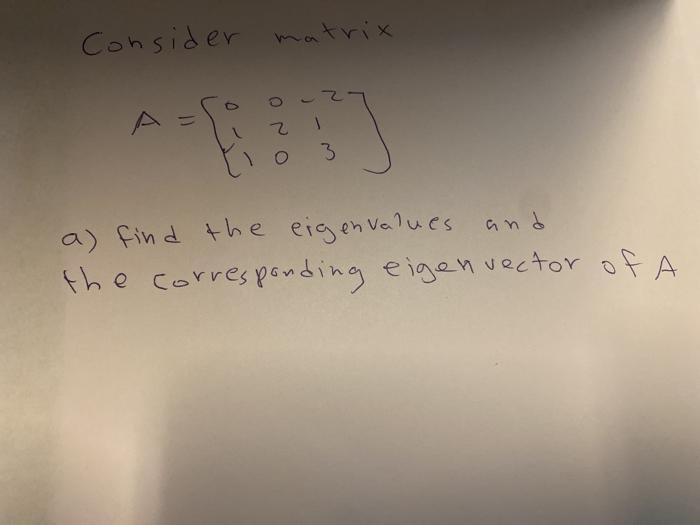 Consider matrix
A = [0 0 -2
1 2 1
1 0 3]
a) find the eigenvalues and
the corresponding eigenvector of A